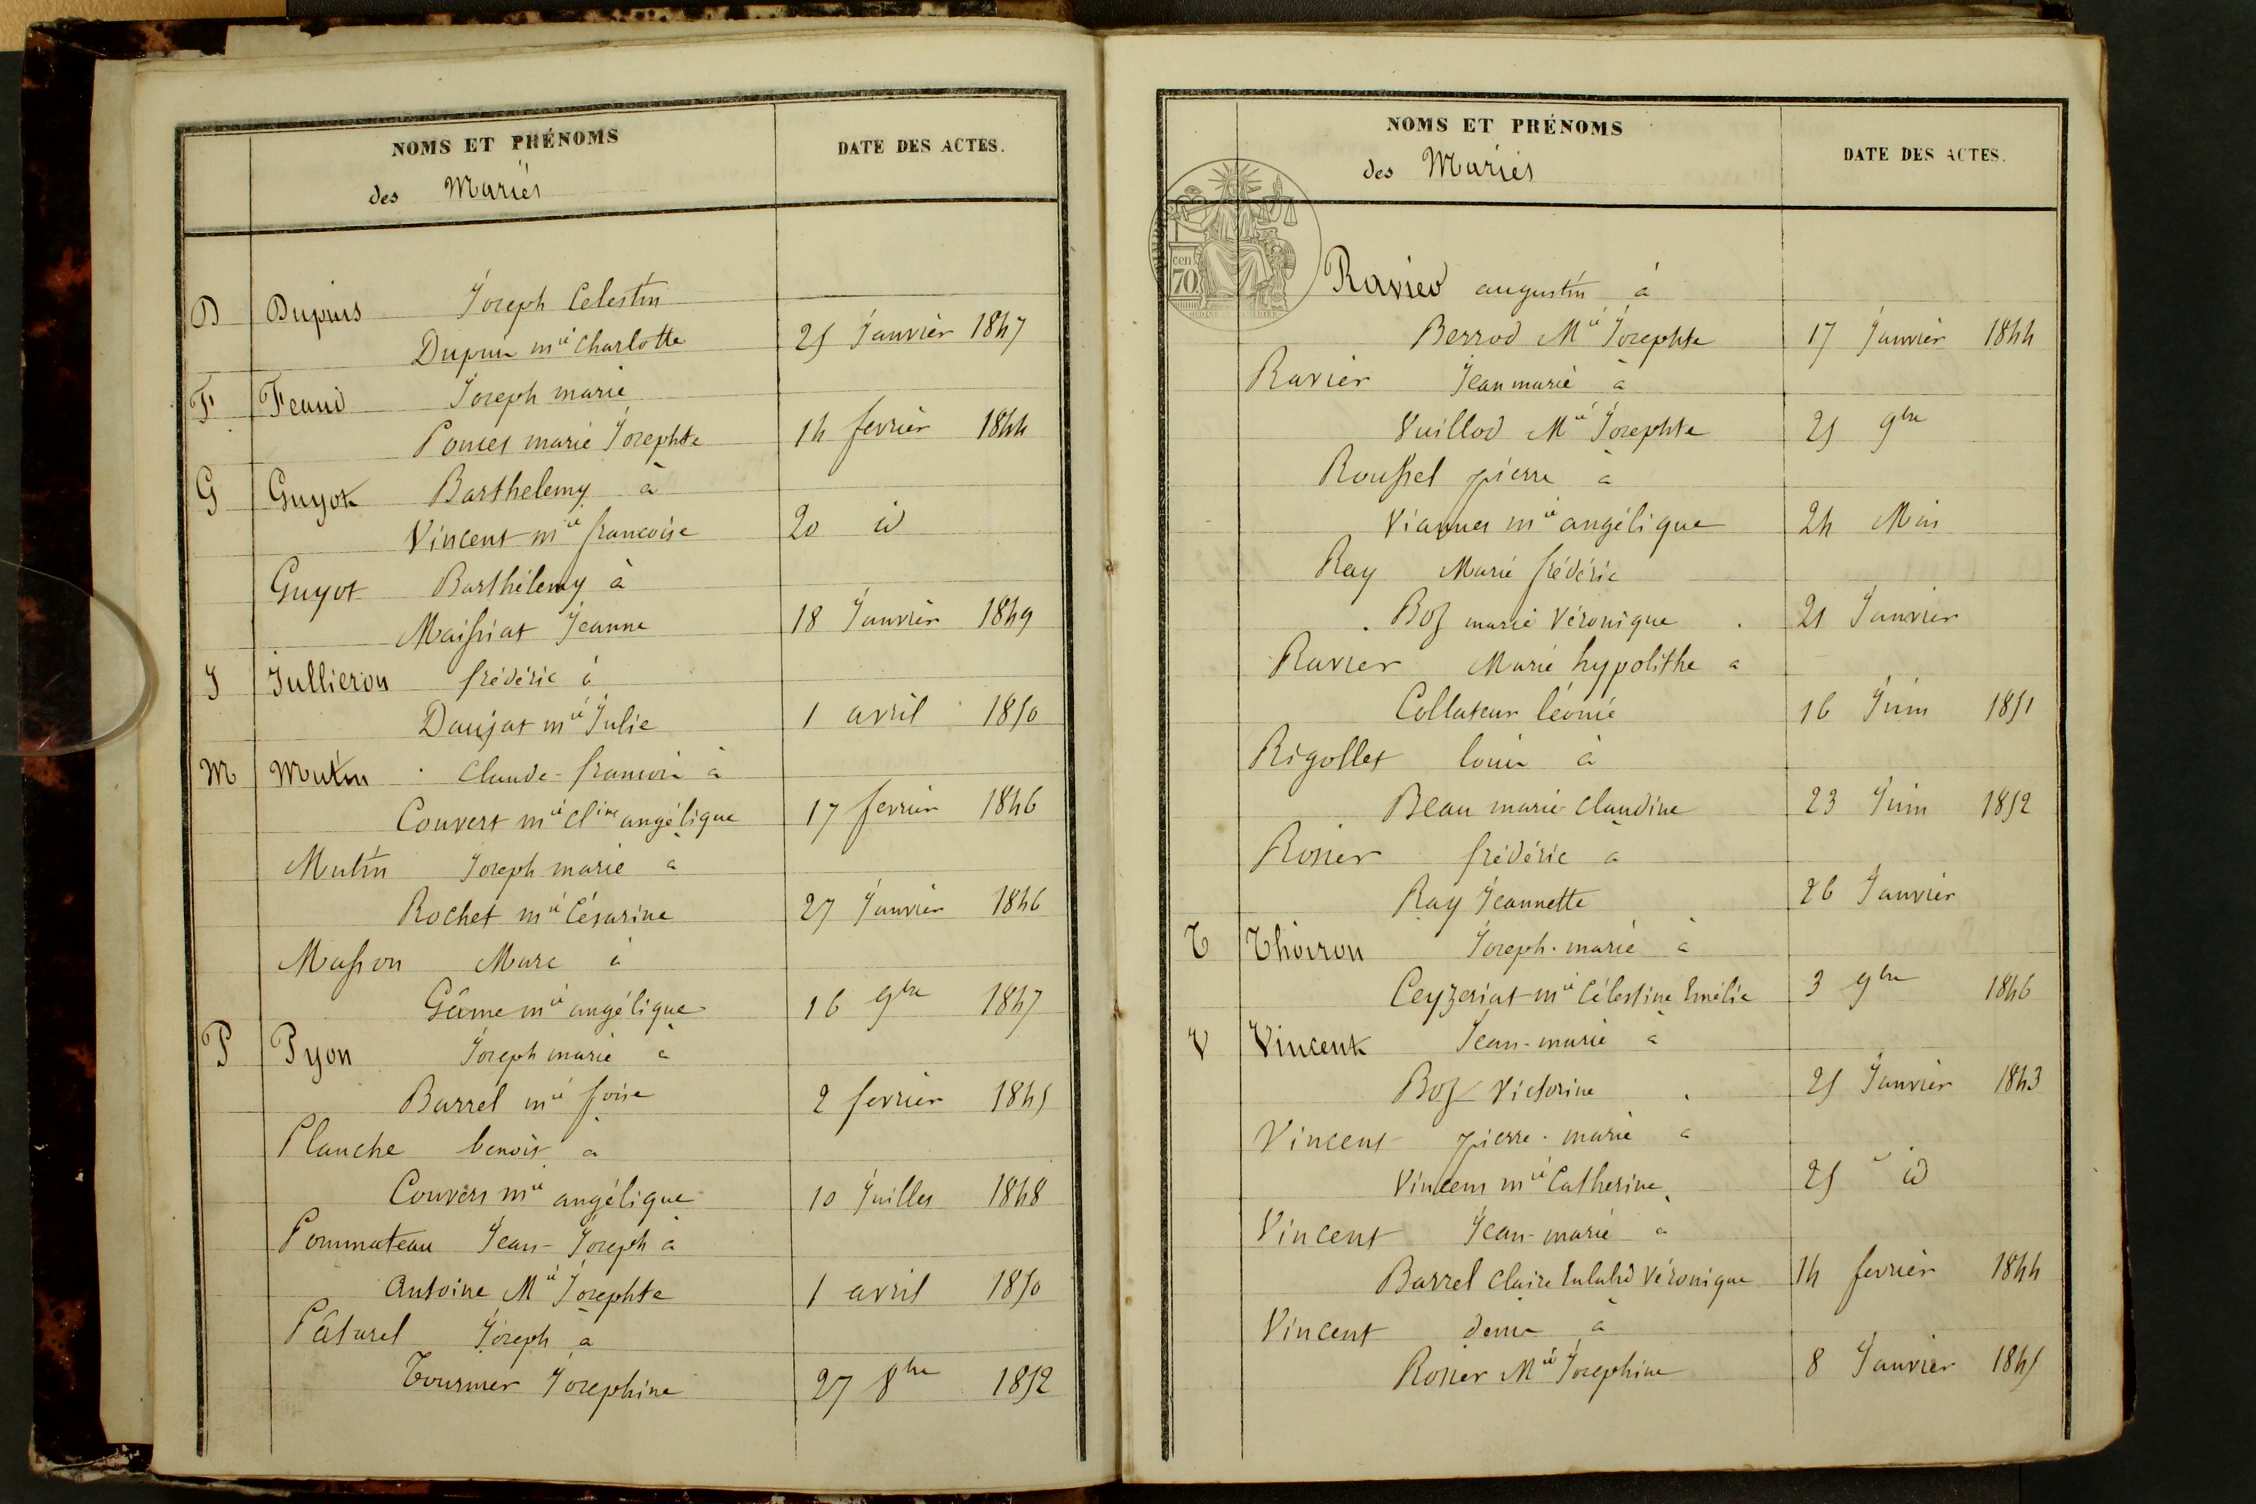 NOMS ET PRÉNOMS
des Mariés
DATE DES ACTES.
D Dupuis Joseph Celestin
Dupuis mie Charlotte 25 Janvier 1847
F Feaud Joseph marie
Poncet marie Josephte 14 fevrier 1844
G Guyot Barthelemy à
Vincent mie francoise 20 id
Guyot Barthélemy à
Maissiat Jeanne 18 Janvier 1849
J Jullieron frédéric à
Daujat mie Julie 1 avril 1850
M Mutin Claude-francois à
Convert mie Cline angélique 17 fevrier 1846
Mutin Joseph marie à
Rochet mie Césarine 27 Janvier 1846
Masson Marc à
Gâme mie angélique 16 9bre 1847
P Pyon Joseph marie à
Barrel mie foise 2 fevrier 1845
Planche benoit à
Convert mie angélique 10 Juillet 1848
Pommateau Jean-Joseph à
Antoine Mie Josephte 1 avril 1850
Pâturel Joseph à
Tournier Josephine 27 8bre 1852
NOMS ET PRÉNOMS
des Mariés
DATE DES ACTES.
cen
70
Ravied augustin à
Berrod Mie Josephte 17 Janvier 1844
Ravier Jean marie à
Vuillod Mie Josephte 25 9bre
Roussel pierre à
Viannet mie angélique 24 Mai
Ray Marie frédéric
Boz marie Véronique 21 Janvier
Ravier Marie hypolithe à
Collateur léonie 16 Juin 1851
Rigollet louis à
Beau marie Claudine 23 Juin 1852
Rosier frédéric à
Ray Jeannette 26 Janvier
T Thoiron Joseph-marie à
Ceyzeriat mie Célestine Emélie 3 9bre 1846
V Vincent Jean-marie à
Boz Victorine 25 Janvier 1843
Vincent pierre-marie à
Vincent mie Catherine 25 id
Vincent Jean-marie à
Barrel Claire Véronique 14 fevrier 1844
Vincent denis à
Rosier Mie Josephine 8 Janvier 1845